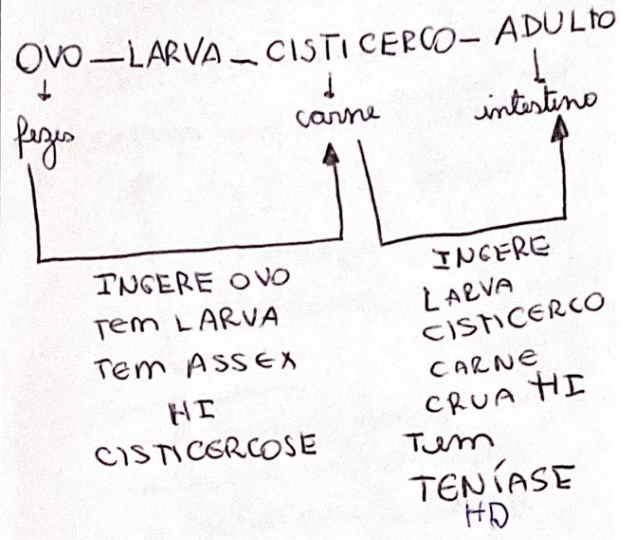 OVO — LARVA — CISTICERCO — ADULTO
fezes
carne
intestino
INGERE OVO
Tem LARVA
Tem ASSEX
HI
CISTICERCOSE
INGERE
LARVA
CISTICERCO
CARNE
CRUA HI
Tem
TENÍASE
HD